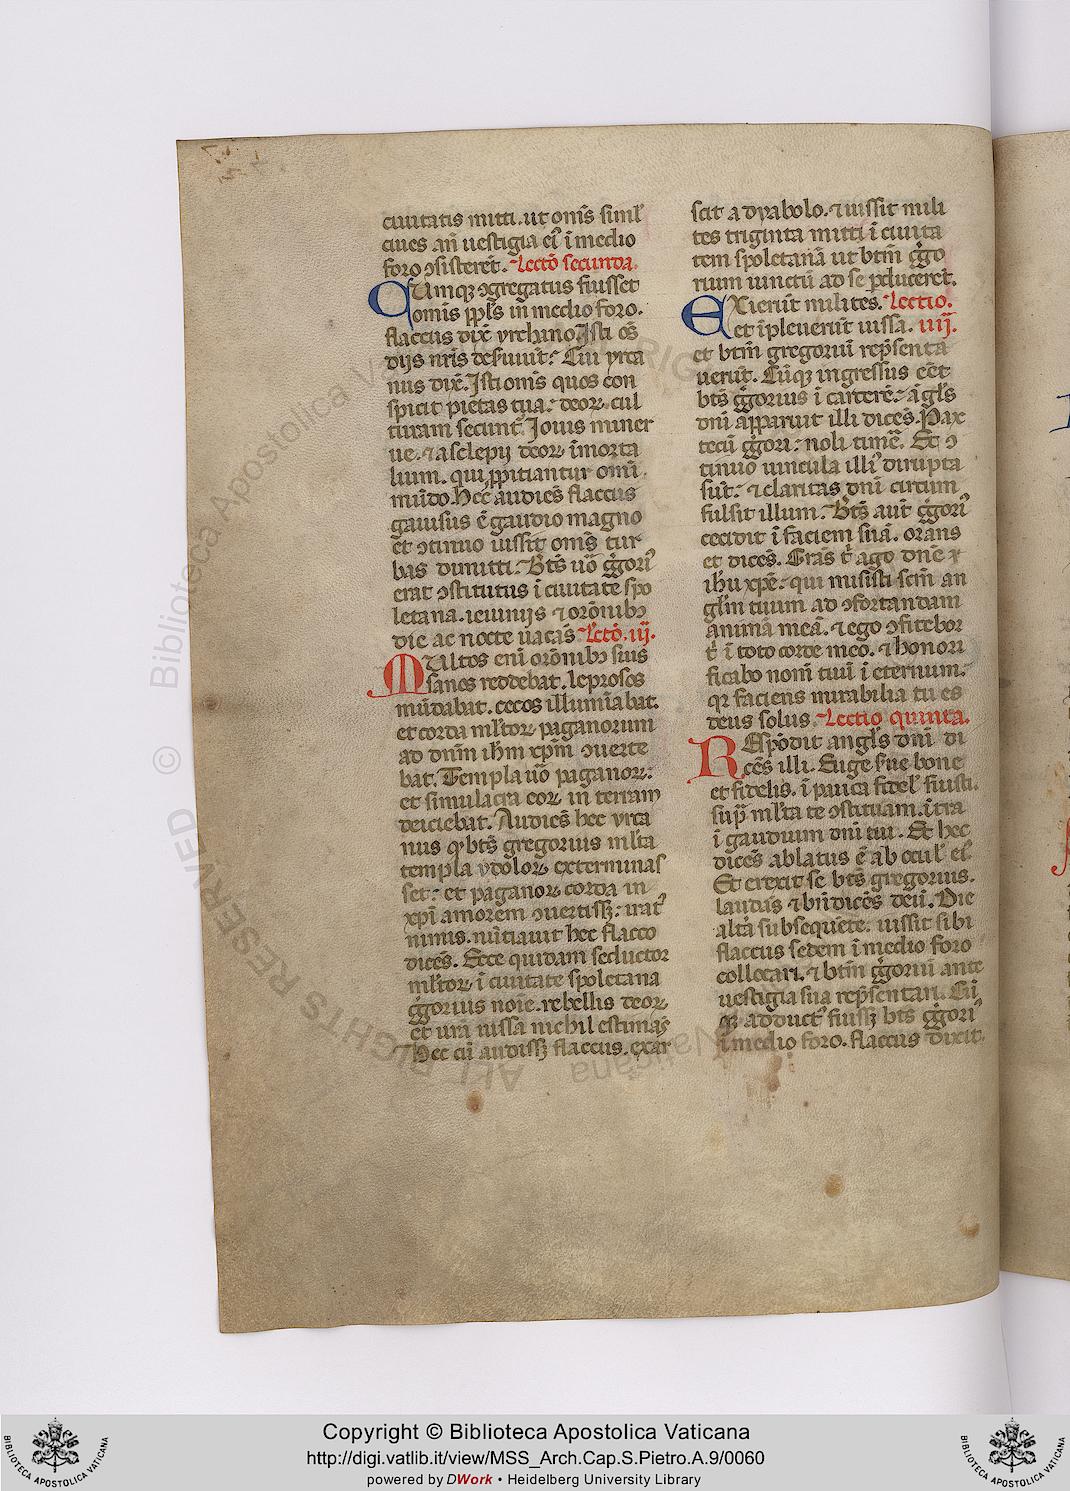 ciuitatis mitti. ut om̄s siml̓
ciues an̄ uestigia ei᷒ ī medio
foro ↄsisterēt. Lectō secūnda.
Cūmqꝫ ↄgregatus fuisset
omīs ppl̄s in medio foro.
flaccus dix̄ yrchano. Isti oēs
dijs nr̄is deẜuiūt: Cui yrca
nus dix̄. Isti omīs quos con
spicit pietas tua: deoꝝ cul
turam secunt᷒. Jouis miner
ue. ⁊ asclepij deoꝝ īmorta
lium. qui ꝓpitiantur omī
mūdo. Hec audiēs flaccus
gauisus ē gaudio magno
et ↄtinuo iussit omīs tur
bas dimitti. Bt̄s uō gḡori᷒
erat ↄstitutus ī ciuitate spo
letana. ieiunijs ⁊ orōnibꝫ
die ac nocte uacās Lectō. iij.
Multos eni orōnibꝫ suis
sanos reddebat. leprosos
mūdabat. cecos illumīabat.
et corda ml̓toꝝ paganorum
ad dnm̄ ihm̄ xpm̄ ↄuerte
bat. Templa uō paganoꝝ:
et simulacra eoꝝ in terram
deiciebat. Audiēs hec yrca
nus qꝫ bt̄s gregorius ml̓ta
templa ydoloꝝ exterminas
set: et paganoꝝ corda in
xpi amorem ↄuertissꝫ: irat᷒
nimis. nūtiauit hec flacco
dicēs. Ecce quidam seductor
ml̓toꝝ ī ciuitate spoletana
gḡorius noīe. rebellis deoꝝ
et ur̄a iussa nichil estimās
Hec cū audissꝫ flaccus. exar
sit a dyabolo. ⁊ iussit mili
tes triginta mitti ī ciuita
tem spoletanā ut btm̄ gḡo
rium uinctū ad se ꝑduceret.
Exierūt milites. Lectio.
et īpleuerūt iussa. iiij.
et btm̄ gregoriū rep̄senta
uerūt. Cūqꝫ ingressus eēt
bt̄s gḡorius ī carcerē: āgl̄s
dnī apparuit illi dicēs. Pax
tecū gḡori: noli timē. Et ↄ
tinuo uincula illi᷒ dirupta
sūt: ⁊ claritas dnī circum
fulsit illum. Bt̄s aut̄ gḡori᷒
cecidit ī faciem suā. orans
et dicēs. Grās t̓ ago dnē
ihū xp̄e: qui misisti scm̄ an
gl̄m tuum ad ↄfortandam
animā meā. ⁊ ego ↄfitebor
t̓ ī toto corde meo. ⁊ honori
ficabo nom̄ tuū ī eternum:
qꝛ faciens mirabilia tu es
deus solus. Lectio quinta.
Respōdit angl̄s dnī di
cēs illi. Euge ẜue bone
et fidelis. ī pauca fidel᷒ fuisti.
suꝑ ml̓ta te ↄstituam. ītra
ī gaudium dnī tui. Et hec
dicēs ablatus ē ab ocul᷒ ei᷒
Et erexit se bt̄s gregorius.
laudās ⁊ bn̄dicēs deū. Die
altā subsequēte: iussit sibi
flaccus sedem ī medio foro
collocari. ⁊ btm̄ gḡoriū ante
uestigia sua rep̄sentari. Cū
qꝫ adduct᷒ fuissꝫ bt̄s gḡori᷒
ī medio foro. flaccus dixit.
© Biblioteca Apostolica Vaticana
ALL RIGHTS RESERVED
Copyright © Biblioteca Apostolica Vaticana
http://digi.vatlib.it/view/MSS_Arch.Cap.S.Pietro.A.9/0060
powered by DWork • Heidelberg University Library
BIBLIOTECA APOSTOLICA VATICANA
BIBLIOTECA APOSTOLICA VATICANA